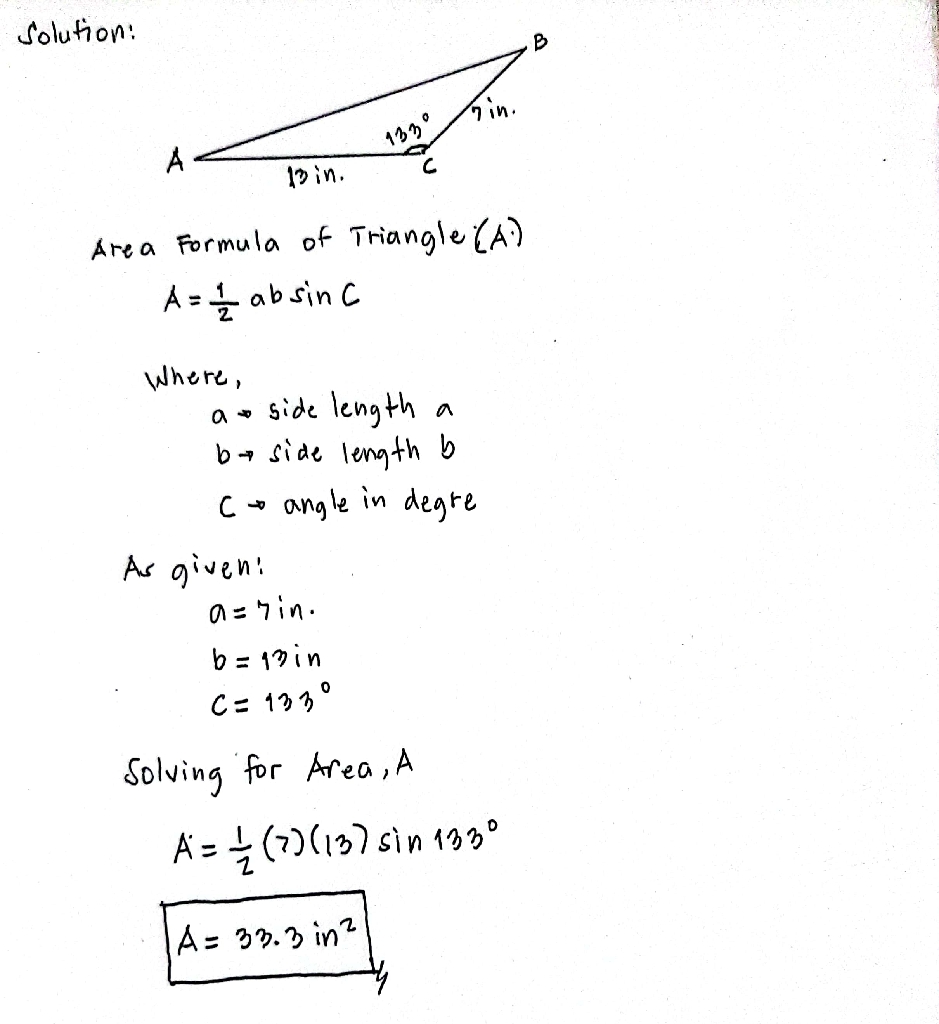 Solution:
B
7 in.
133°
A
13 in.
C
Area Formula of Triangle (A)
A = 1/2 ab sin C
Where,
a → side length a
b → side length b
C → angle in degre
As given:
a = 7 in.
b = 13 in
C = 133°
Solving for Area, A
A = 1/2 (7)(13) sin 133°
A = 33.3 in²